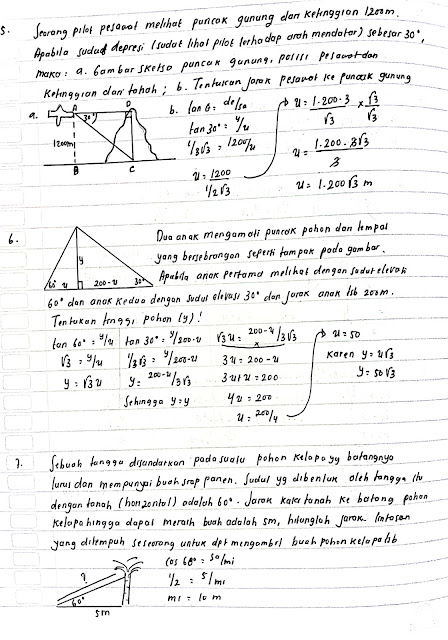 5. Seorang pilot pesawat melihat puncak gunung dari ketinggian 1200m.
Apabila sudut depresi (sudut lihat pilot terhadap arah mendatar) sebesar 30°,
maka : a. Gambar sketsa puncak gunung, posisi pesawat dan
ketinggian dari tanah ; b. Tentukan jarak pesawat ke puncak gunung
a.
A
D
30°
1200m
B
C
b. tan θ = de/sa
tan 30° = y/x
1/3√3 = 1200/x
x = 1200
1/3√3
x = 1.200 · 3 × √3
√3 √3
x = 1.200 · 3√3
3
x = 1.200 √3 m
6. Dua anak mengamati puncak pohon dari tempat
yang berseberangan seperti tampak pada gambar.
Apabila anak pertama melihat dengan sudut elevasi
60° dan anak kedua dengan sudut elevasi 30° dan jarak anak tsb 200m.
Tentukan tinggi pohon (y) !
y
60° x 200-x 30°
tan 60° = y/x
√3 = y/x
y = √3 x
tan 30° = y/200-x
1/3√3 = y/200-x
y = 200-x/3√3
Sehingga y=y
√3x = 200-x/3√3
3x = 200-x
3x+x = 200
4x = 200
x = 200/4
x = 50
Karen y = x√3
y = 50√3
7. Sebuah tangga disandarkan pada suatu pohon kelapa yg batangnya
lurus dan mempunyai buah siap panen. Sudut yg dibentuk oleh tangga itu
dengan tanah (horizontal) adalah 60°. Jarak kaki tanah ke batang pohon
kelapa hingga dapat meraih buah adalah 5m, hitunglah jarak lintasan
yang ditempuh seseorang untuk dpt mengambil buah pohon kelapa tsb
?
60°
5m
cos 60° = sa/mi
1/2 = 5/mi
mi = 10 m